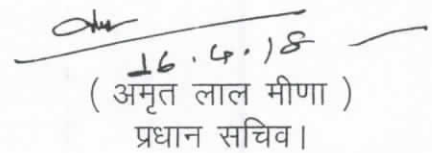 16.4.18
( अमृत लाल मीणा )
प्रधान सचिव।